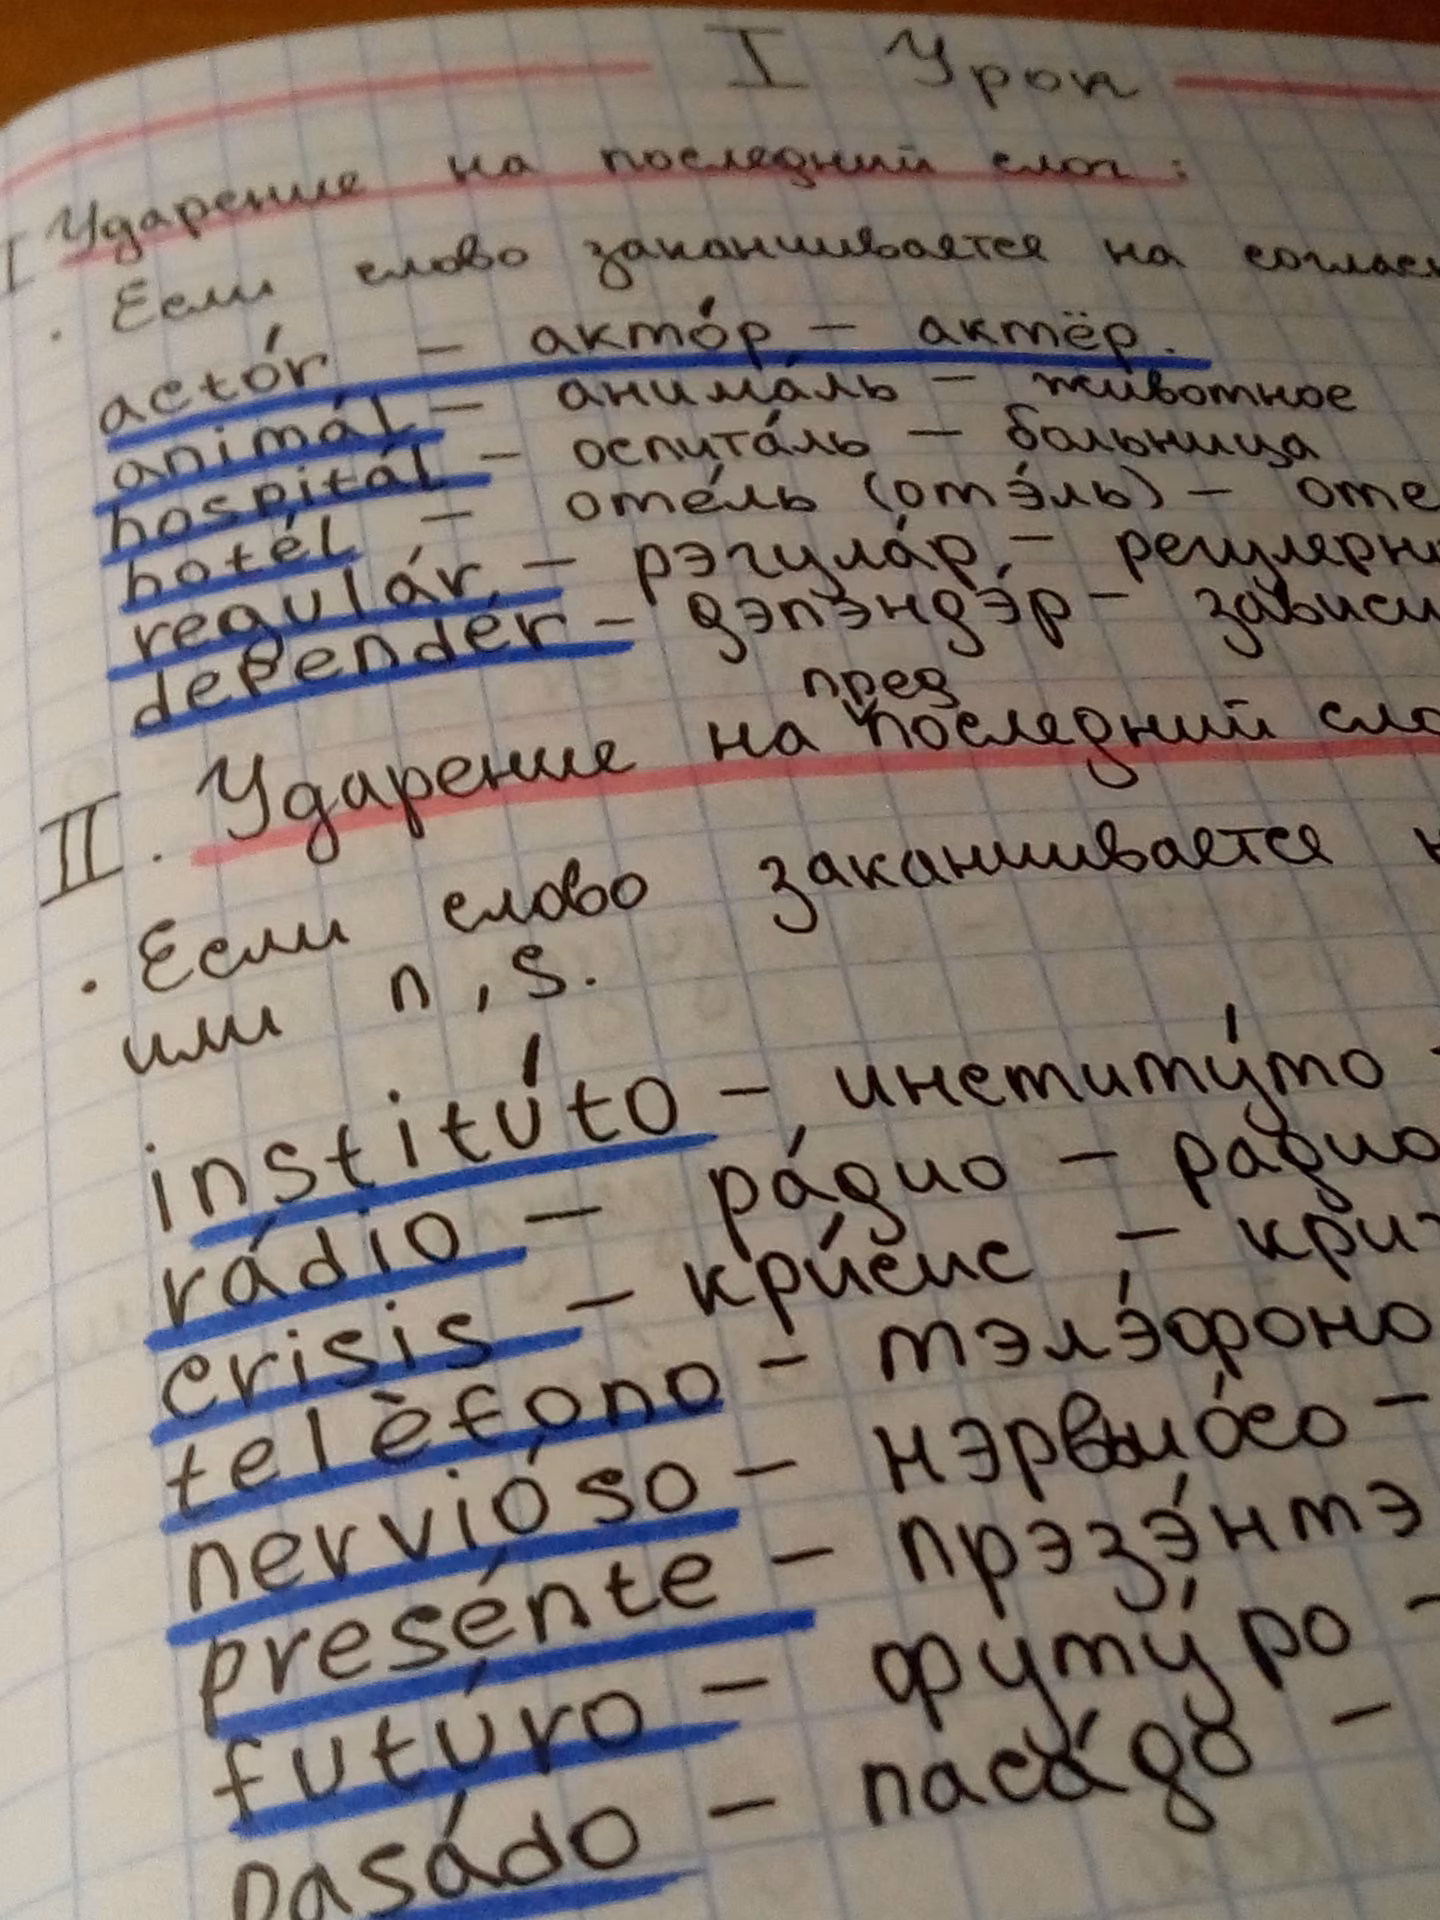 I Урок
I Ударение на последний слог:
· Если слово заканчивается на соглас
actór – актóр – актёр.
animál – анимáль – животное
hospitál – оспитáль – больница
hotél – отéль (отэ́ль) – оте
regulár – рэгулáр – регулярн
dependér – дэпэндэ́р – зависи
пред
II. Ударение на последний сло
· Если слово заканчивается н
или n, s.
institúto – институ́то –
rádio – рáдио – радио
crisis – кри́сис – кри
telèfono – тэлэ́фоно
nervióso – нэрвьио́со –
presénte – прэзэ́нтэ
futúro – футу́ро –
pasádo – пасáдо –